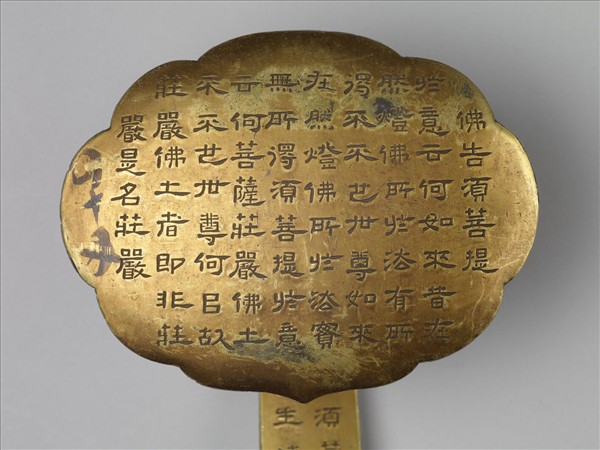 佛告須菩提
於意云何如來昔在
然燈佛所於法有所
得不不也世尊如來
在然燈佛所於法實
無所得須菩提於意
云何菩薩莊嚴佛土
不不也世尊何以故
莊嚴佛土者即非莊
嚴是名莊嚴
須
生